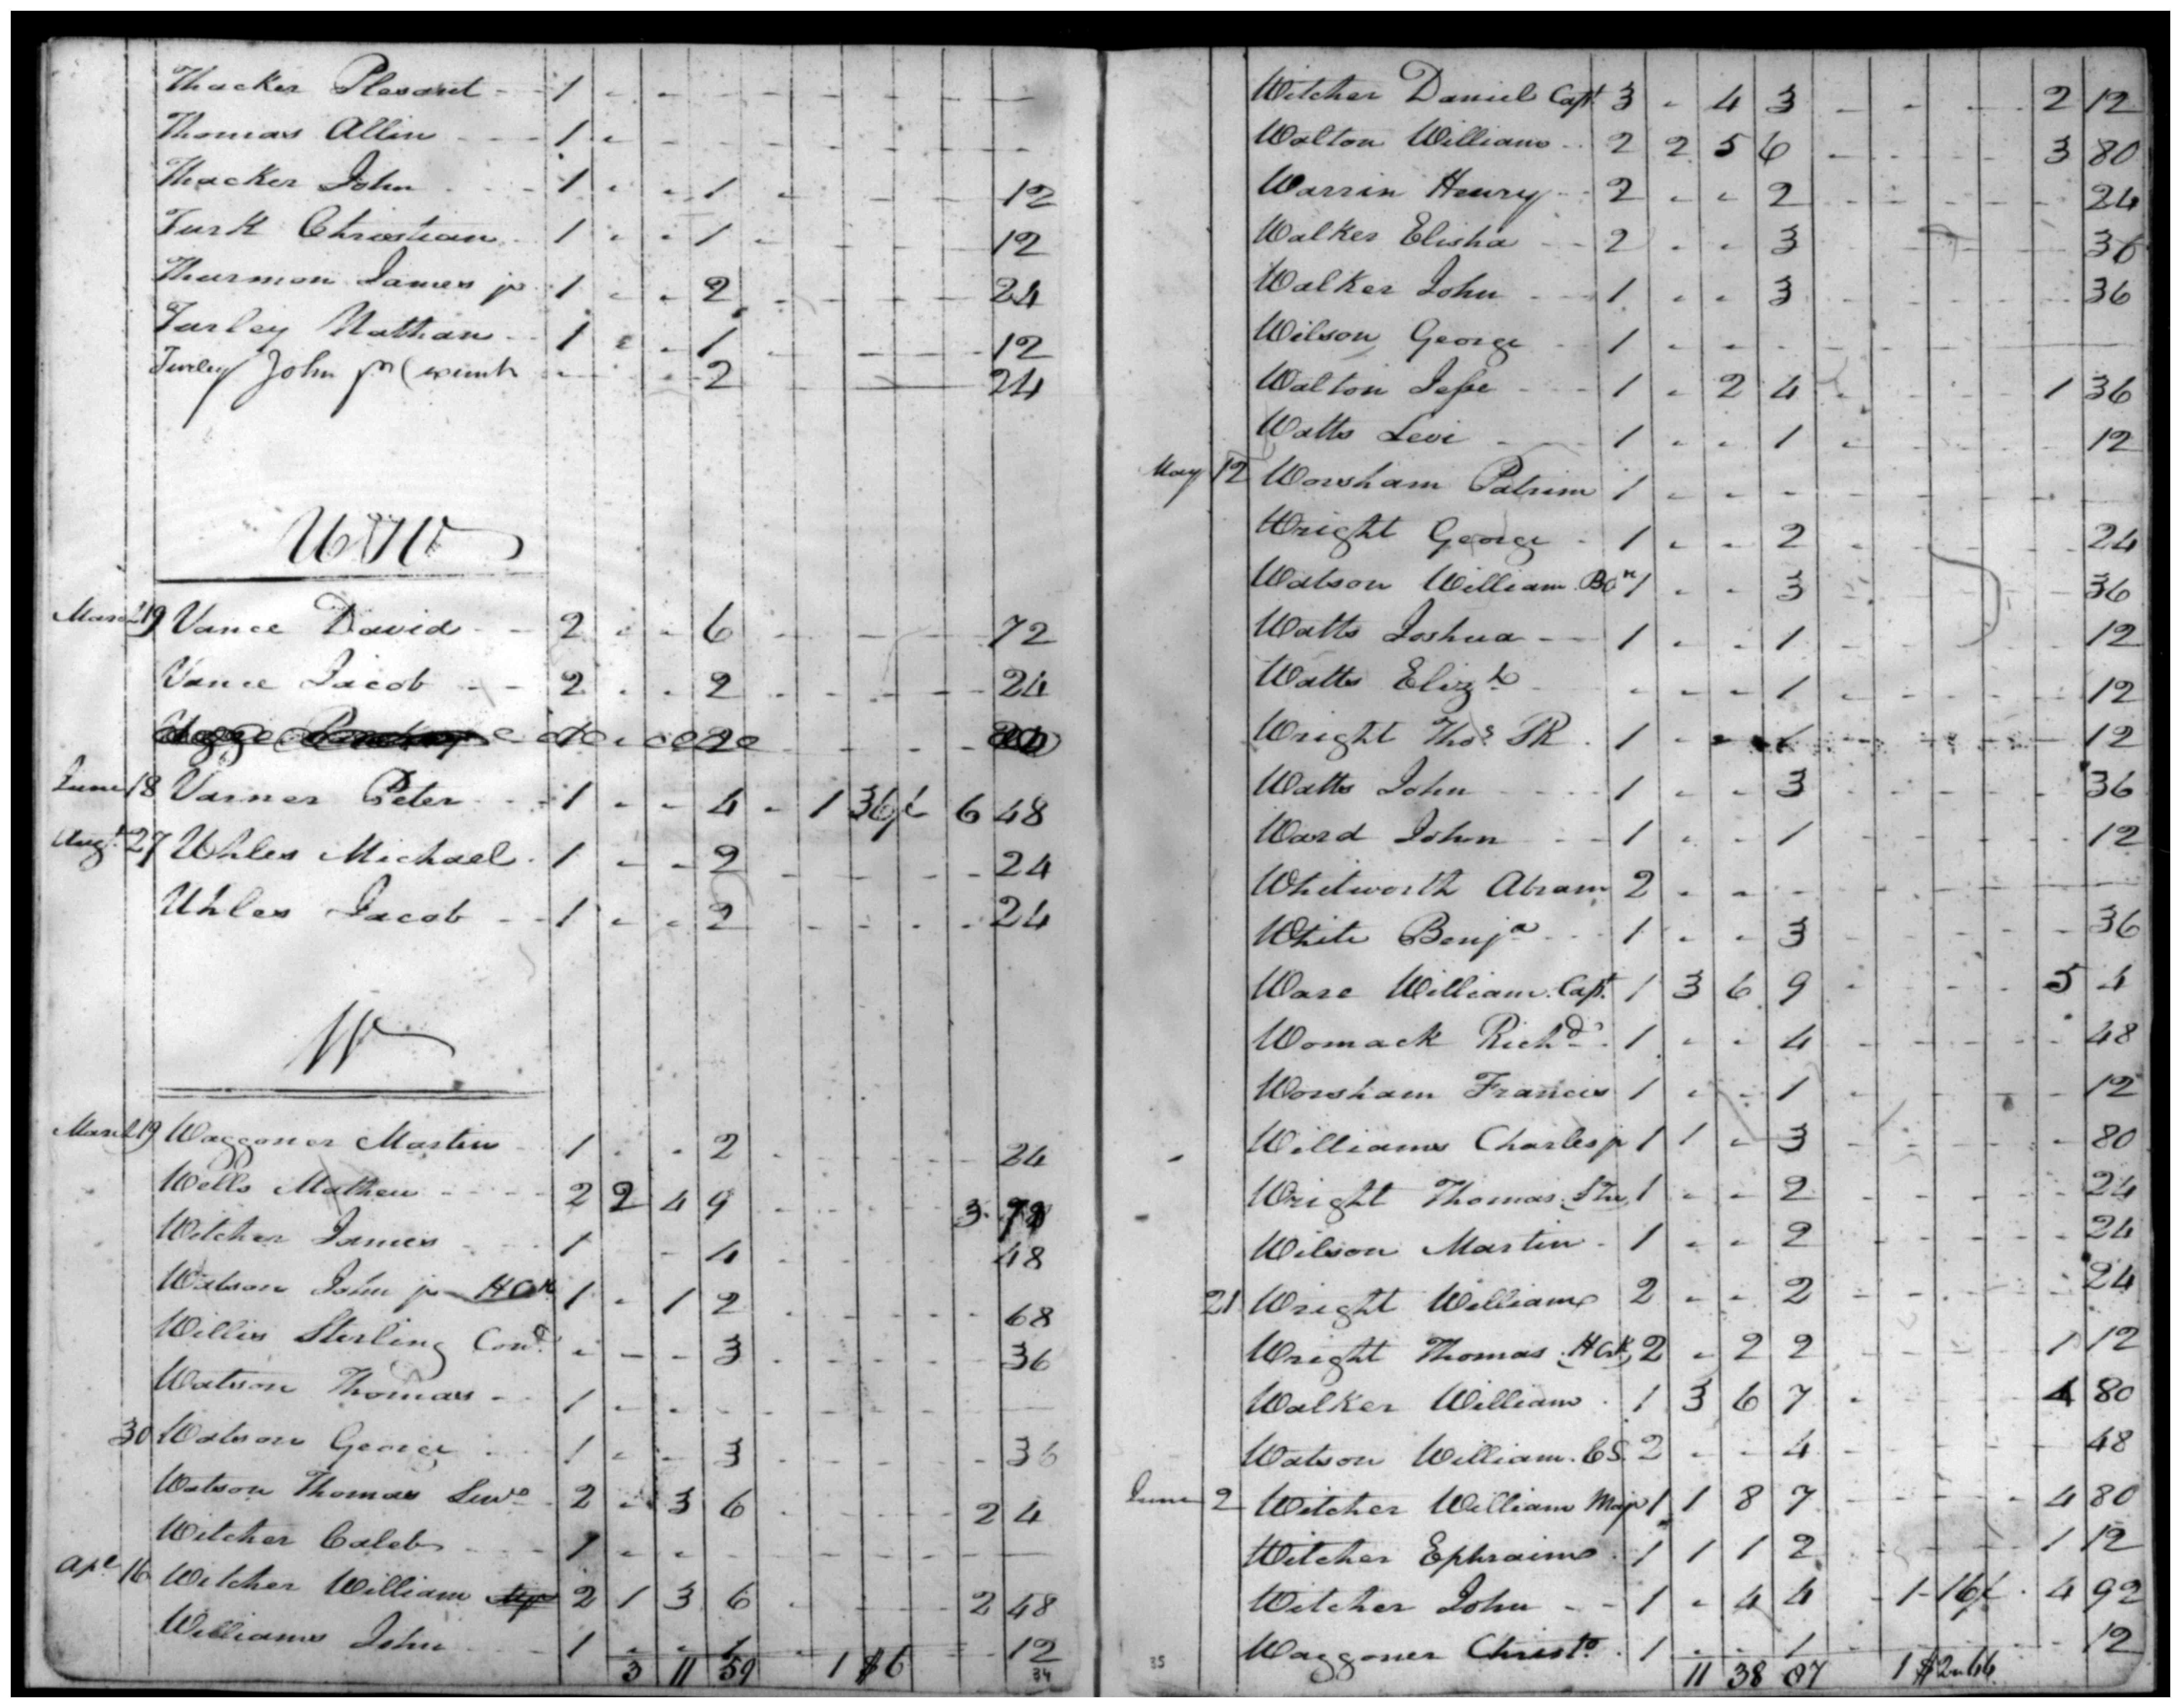 Thacker Plesant - - 1 - - - - - - - -
Thomas Allin - - - 1 - - - - - - - -
Thacker John - - - 1 - - 1 - - - - 12
Turk Christian - 1 - - 1 - - - - 12
Thurmon James jr 1 - - 2 - - - - 24
Turley Nathan - - 1 - - 1 - - - - 12
Turley John jr ( - - - 2 - - - - 24
U&V
March 19 Vance David - - 2 - - 6 - - - - 72
Vance Jacob - - 2 - - 2 - - - - 24
June 18 Varner Peter - - 1 - - 4 - 1 36£ 6 48
Augt 27 Uhles Michael - 1 - - 2 - - - - 24
Uhles Jacob - - 1 - - 2 - - - - 24
W
March 19 Waggoner Martin - 1 - - 2 - - - - 24
Wells Mathew - - - - 2 2 4 9 - - - - 3
Witcher James - - - 1 - 4 - - - - 48
Watson John jr HCk 1 - 1 2 - - - - 68
Willis Sterling Cond - - - 3 - - - - 36
Watson Thomas - - 1 - - - - - - - -
30 Watson George - - 1 - - 3 - - - - 36
Watson Thomas - 2 - 3 6 - - - - 2 4
Witcher Caleb - - - 1 - - - - - - - -
Apl 16 Witcher William 2 1 3 6 - - - - 2 48
Williams John - - 1 - - 1 - - - - 12
3 11 59 1 $6
34
Witcher Daniel Capt 3 - 4 3 - - - - 2 12
Walton William - - 2 2 5 6 - - - - 3 80
Warrin Henry - - 2 - - 2 - - - - 24
Walker Elisha - - 2 - - 3 - - - - 36
Walker John - - - 1 - - 3 - - - - 36
Wilson George - 1 - - - - - - - -
Walton Jesse - - - 1 - 2 4 - - - - 1 36
Watts Levi - - - 1 - - 1 - - - - 12
May 12 Worsham Patrim 1 - - - - - - - -
Wright George - 1 - - 2 - - - - 24
Watson William Bn 1 - - 3 - - - - 36
Watts Joshua - - 1 - - 1 - - - - 12
Watts Elizh - - - - 1 - - - - 12
Wright Thos PR - 1 - - 1 - - - - 12
Watts John - - - 1 - - 3 - - - - 36
Ward John - - - 1 - - 1 - - - - 12
Whitworth Abram 2 - - - - - - - -
White Benja - - 1 - - 3 - - - - 36
Ware William Capt. 1 3 6 9 - - - - 5 4
Womack Richd - 1 - - 4 - - - - 48
Worsham Francis 1 - - 1 - - - - 12
Williams Charles jr 1 1 - 3 - - - - 80
Wright Thomas 1 - - 2 - - - - 24
Wilson Martin - 1 - - 2 - - - - 24
21 Wright William 2 - - 2 - - - - 24
Wright Thomas HCk 2 - 2 2 - - - - 1 12
Walker William - 1 3 6 7 - - - - 4 80
Watson William CS. 2 - - 4 - - - - 48
June 2 Witcher William Majr 1 1 8 7 - - - - 4 80
Witcher Ephraim - 1 1 1 2 - - - - 1 12
Witcher John - - 1 - 4 4 - 1 - 16£ - 4 92
Waggoner Christo - 1 - - 1 - - - - 12
35
11 38 87 1 $2.66